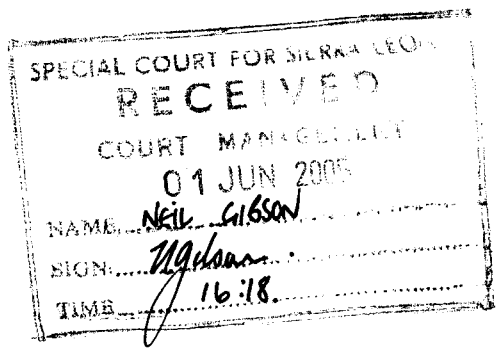 SPECIAL COURT FOR SIERRA LEONE
RECEIVED
COURT MANAGEMENT
01 JUN 2005
NAME NEIL GIBSON
SIGN NGibson.
TIME 16:18.